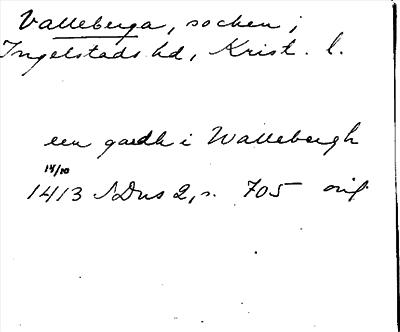 Valleberga, socken i
Ingelstads hd, Krist. l.
een gardh i Wallebergh
14/10
1413 SDns 2, s. 705 orig